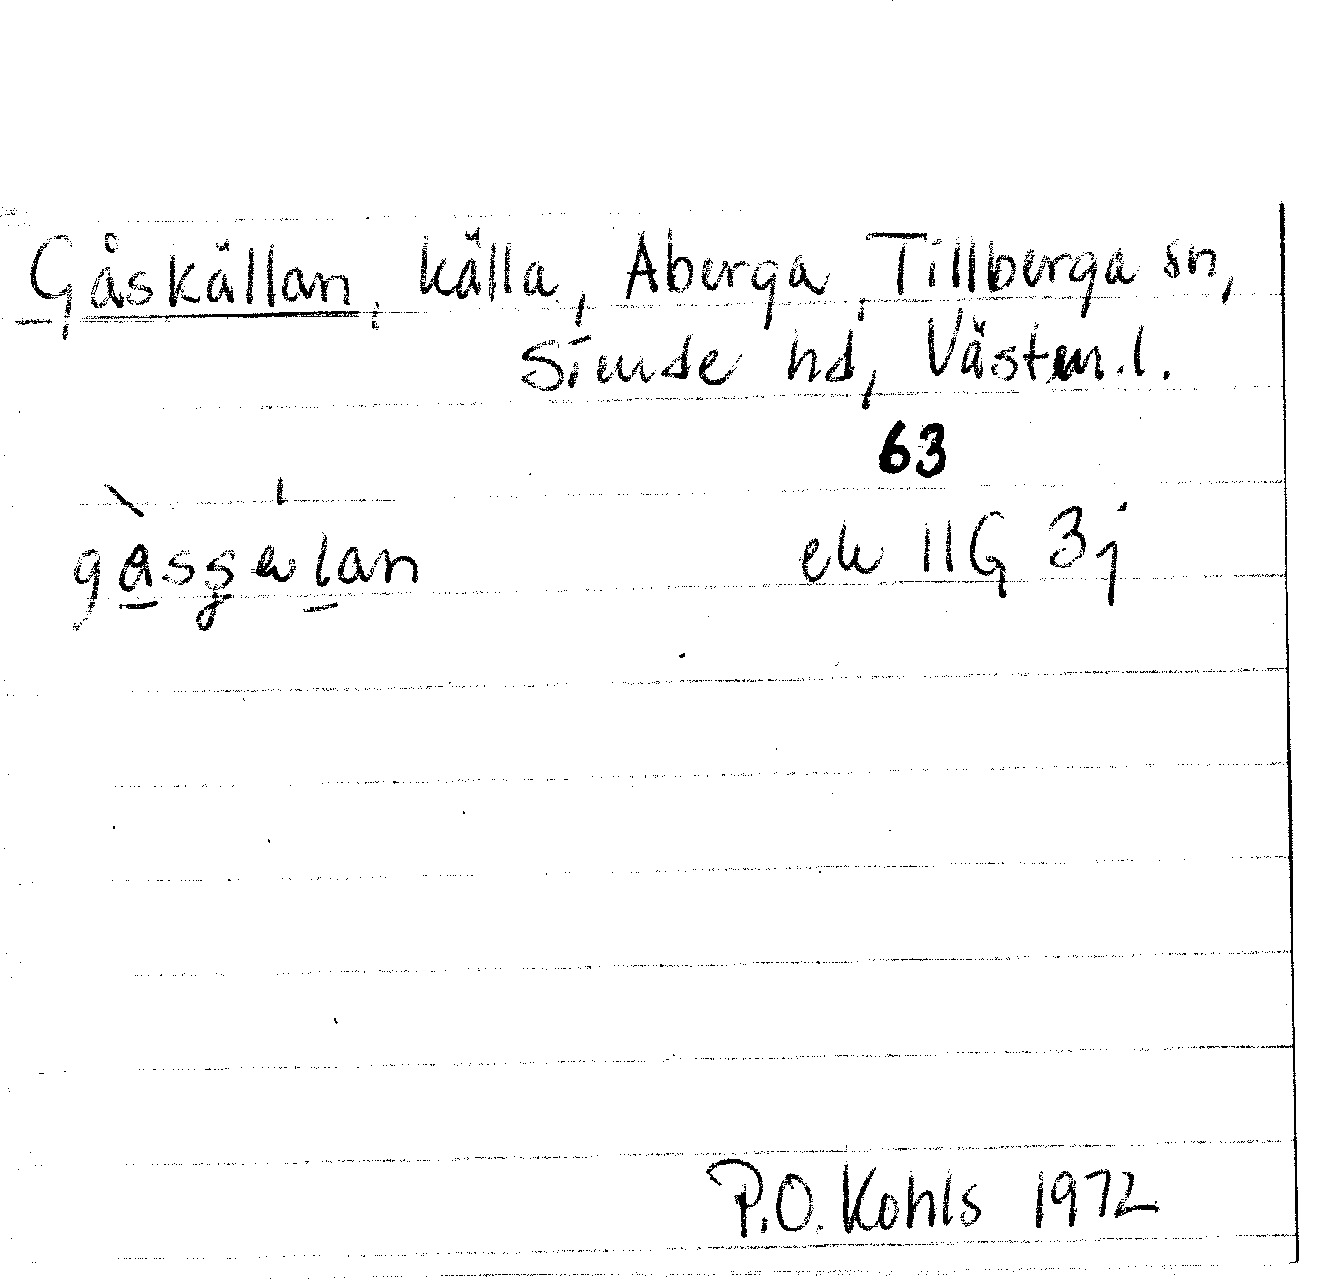 Gåskällan, källa, Aberga, Tillberga sn,
Siende hd, Västm.l.
63
ek 11G 3j
P.O. Kohls 1972